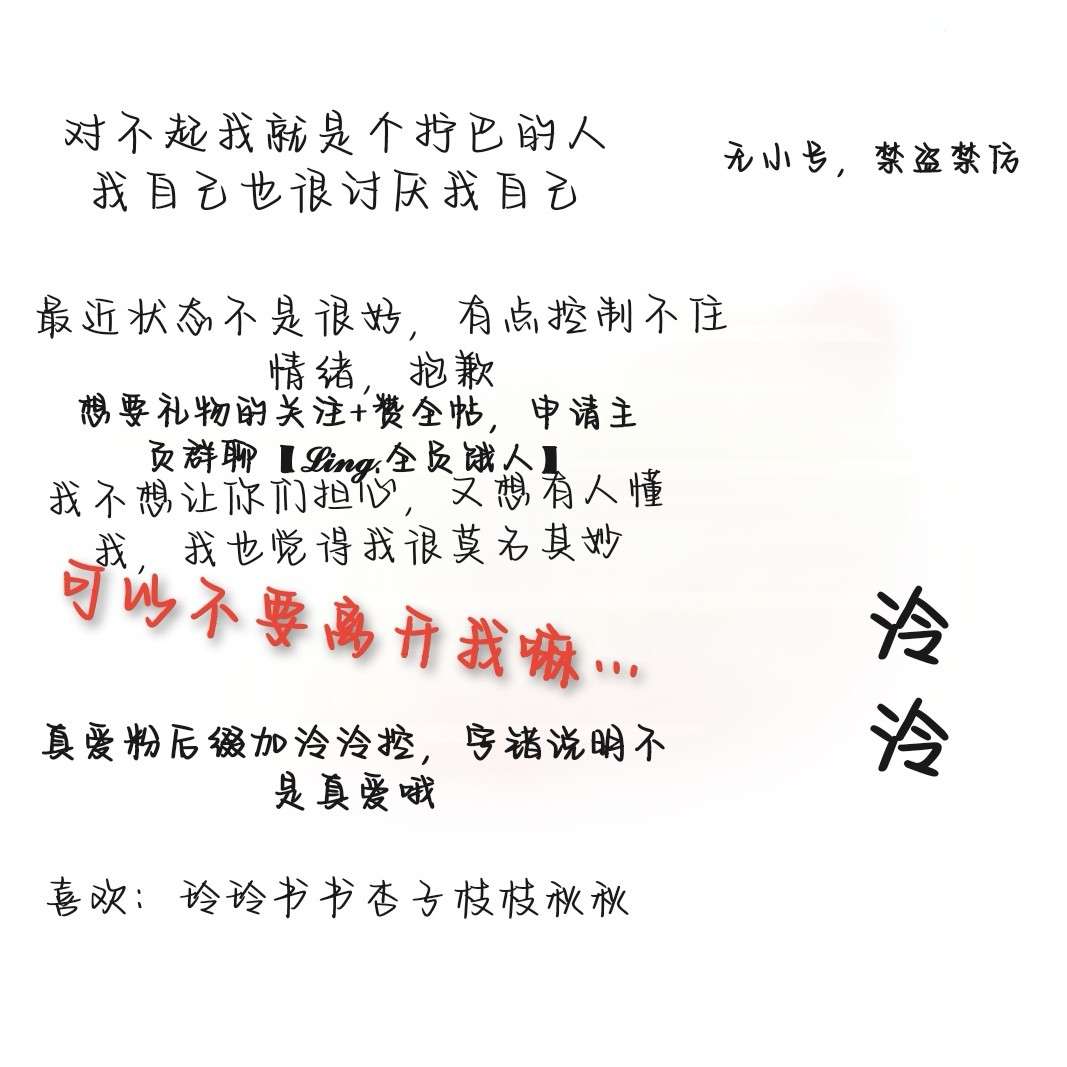 对不起我就是个拧巴的人
我自己也很讨厌我自己
无小号，禁盗禁仿
最近状态不是很好，有点控制不住
情绪，抱歉
想要礼物的关注+赞全帖，申请主
页群聊【Ling.全员饿人】
我不想让你们担心，又想有人懂
我，我也觉得我很莫名其妙
可以不要离开我嘛...
泠
泠
真爱粉后缀加泠泠控，字错说明不
是真爱哦
喜欢：玲玲书书杏子枝枝秋秋